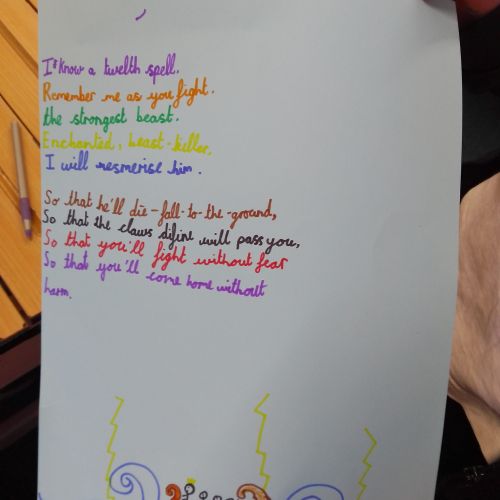 I know a twelth spell.
Remember me as you fight.
the strongest beast.
Enchanted, beast-killer,
I will mesmerise him.
So that he'll die-fall-to-the-ground,
So that the claws difine will pass you,
So that you'll fight without fear
So that you'll come home without
harm.